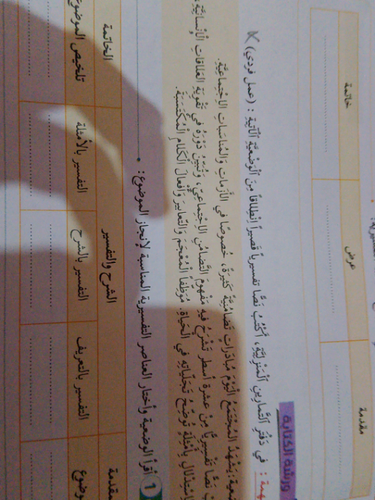 مقدمة
عرض
خاتمة
ورشة الكتابة
في دفتر التمارين المنزلية، أكتب نصا تفسيريا قصيرا انطلاقا من الوضعية الآتية : (عمل فردي)
يشهد المجتمع اليوم مبادرات تضامنية كثيرة، خصوصا في الأزمات والمناسبات الاجتماعية.
نصا تفسيريا من عشرة أسطر تشرح فيه مفهوم التضامن الاجتماعي، وتبين دوره في تقوية العلاقات الإنسانية،
بأمثلة توضح تجلياته في الحياة، موظفا المعجم والتعابير وأفعال الكلام المكتسبة.
1 أقرأ الوضعية وأختار العناصر التفسيرية المناسبة لإنجاز الموضوع :
الشرح والتفسير
الخاتمة
التفسير بالتعريف
التفسير بالشرح
التفسير بالأمثلة
تلخيص الموضوع